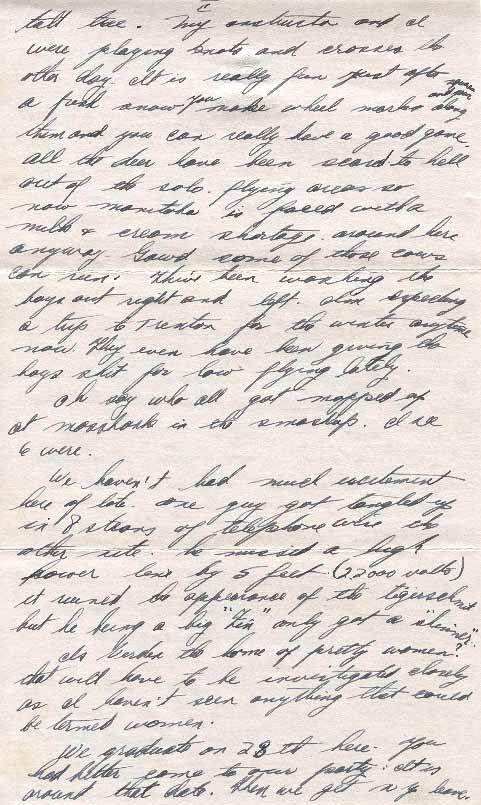 tall tree. My instructor and I
were playing knots and crosses the
other day. It is really fun just after
a fresh snow you make wheel marks along
them and you can really have a good game.
all the deer have been scared to hell
out of the solo flying areas so
now manitoba is faced with a
milk & cream shortage around here
anyway. Gawd some of those cows
can run. They've been washing the
boys out right and left. Im expecting
a trip to Trenton for the winter anytime
now. They even have been giving the
boys shit for low flying lately.
Oh say who all got mopped up
at in the smashup. I see
6 were.
We haven't had much excitement
here of late. One guy got tangled up
in 8 strans of telephone wire the
other nite. he missed a high
power line by 5 feet. (22000 volts)
it ruined the appearance of the
but he being a big only got a
Is Virden the home of pretty women?
that will have to be investigated closely
as I haven't seen anything that could
be termed women.
We graduate on 28 th here. You
had better come to our party. It is
around that date. Then we get leave.